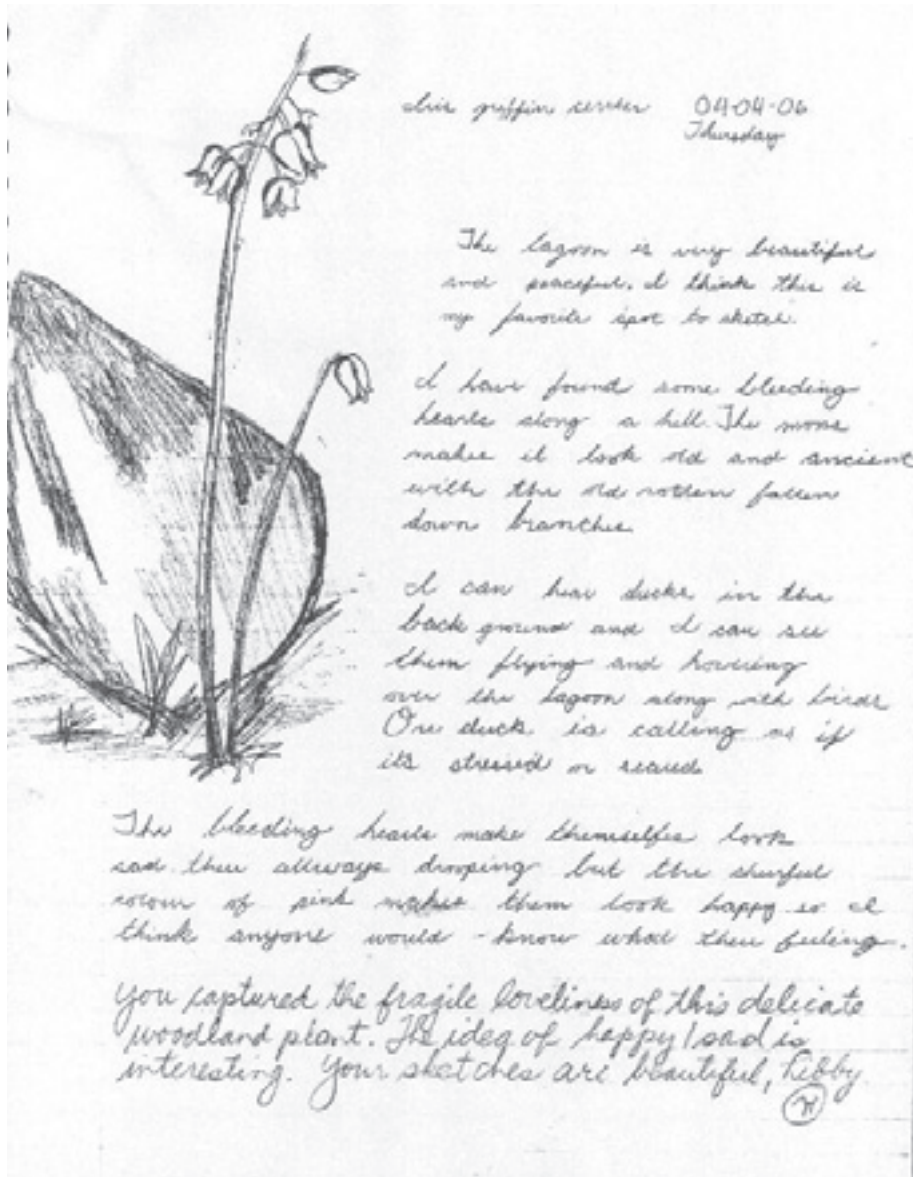 griffin center 04-04-06
Thursday
The lagoon is very beautiful
and peaceful. I think this is
my favorite spot to sketch.
I have found some bleeding
hearts along a hill. The moss
makes it look old and ancient
with the old rotten fallen
down branches
I can hear ducks in the
back ground and I can see
them flying and hovering
over the lagoon along with birds
One duck is calling as if
its stressed or scared
The bleeding hearts make themselfes look
sad. there allways drooping but the
colour of pink makes them look happy so I
think anyone would know what there feeling.
You captured the fragile loveliness of this delicate
woodland plant. The idea of happy/sad is
interesting. Your sketches are beautiful, Libby.